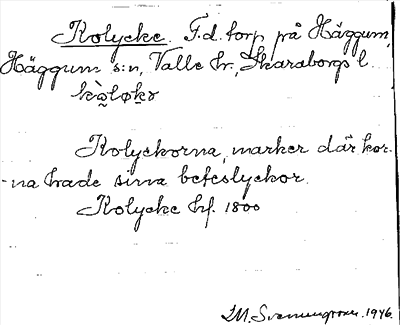 Kolycke. F.d. torp på Häggum,
Häggum s:n, Valle hr., Skaraborgs l.
Kolyckorna, marker där kor-
-na hade sina beteslyckor.
Kolycke hf. 1800
1946.